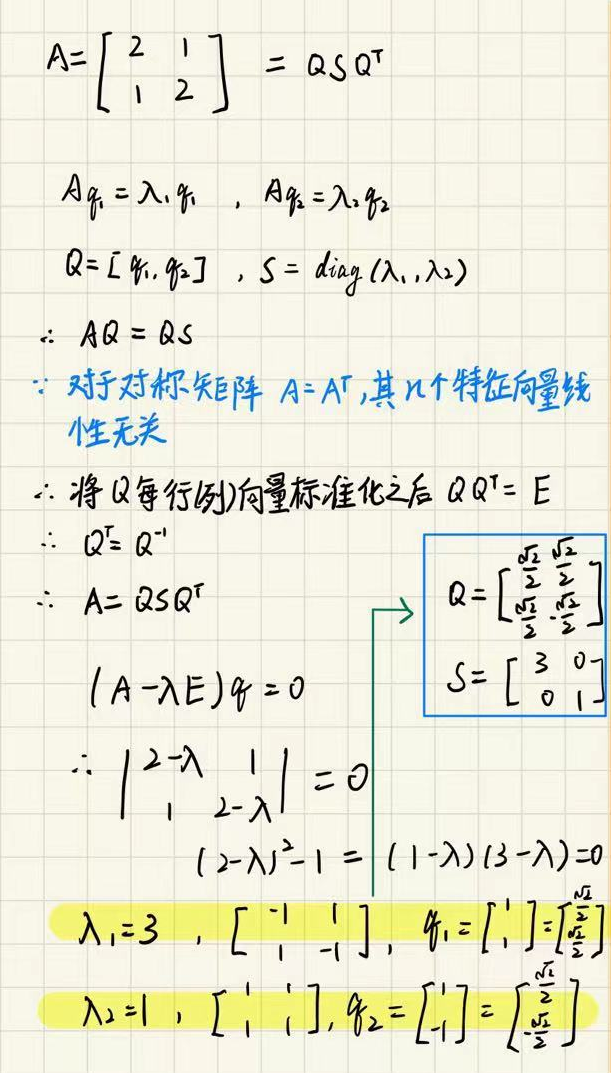 A = [ 2 1 ; 1 2 ] = Q S Qᵀ
Aq₁ = λ₁q₁ , Aq₂ = λ₂q₂
Q = [q₁, q₂] , S = diag(λ₁, λ₂)
∴ AQ = QS
∵ 对于对称矩阵 A = Aᵀ, 其n个特征向量线
性无关
∴ 将Q每行(列)向量标准化之后 QQᵀ = E
∴ Qᵀ = Q⁻¹
∴ A = QSQᵀ
Q = [ √2/2 √2/2 ; √2/2 -√2/2 ]
S = [ 3 0 ; 0 1 ]
(A - λE)q = 0
∴ | 2-λ 1 ; 1 2-λ | = 0
(2-λ)² - 1 = (1-λ)(3-λ) = 0
λ₁ = 3 , [ -1 1 ; 1 -1 ] , q₁ = [ 1 ; 1 ] = [ √2/2 ; √2/2 ]
λ₂ = 1 , [ 1 1 ; 1 1 ] , q₂ = [ 1 ; -1 ] = [ √2/2 ; -√2/2 ]